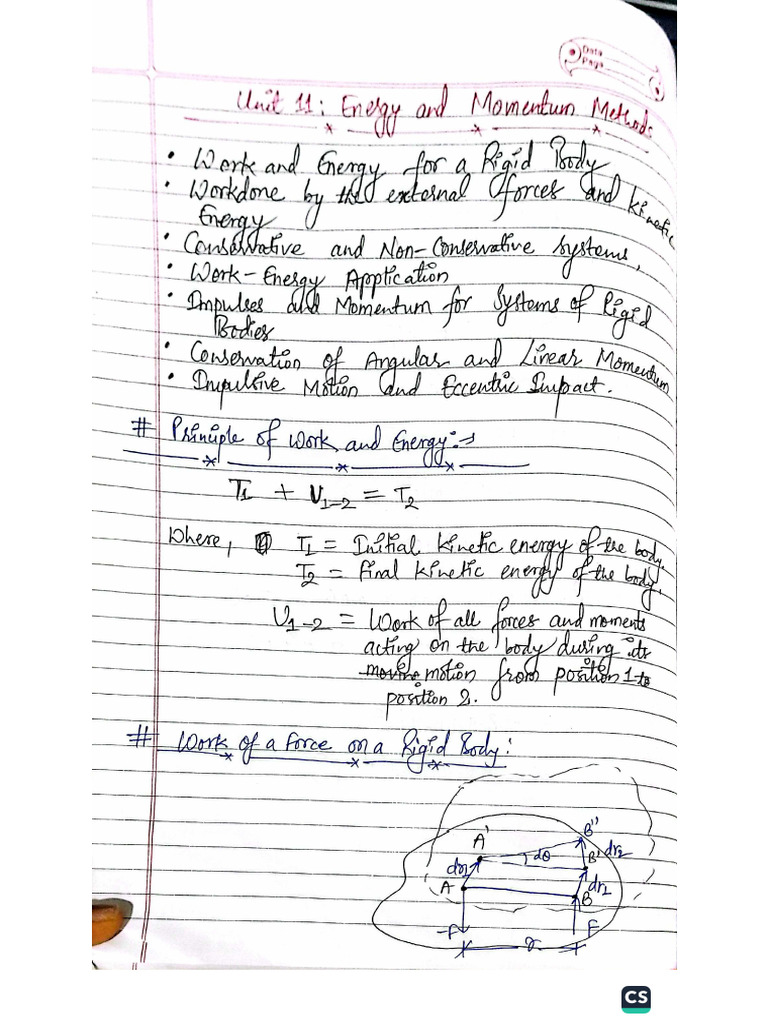 Date
Page
Unit 11: Energy and Momentum Methods
• Work and Energy for a Rigid Body
• Workdone by the external forces and kinetic
Energy
• Conservative and Non-Conservative systems,
• Work-Energy Application
• Impulses and Momentum for Systems of Rigid
Bodies
• Conservation of Angular and Linear Momentum
• Impulsive Motion and Eccentric Impact.
# Principle of Work and Energy:→
T1 + U1-2 = T2
Where, T1 = Initial kinetic energy of the body.
T2 = final kinetic energy of the body.
U1-2 = Work of all forces and moments
acting on the body during its
moving motion from position 1 to
position 2.
# Work of a force on a Rigid Body:
B''
A' dθ B' dr2
dr1
A B dr1
-F F
r
CS